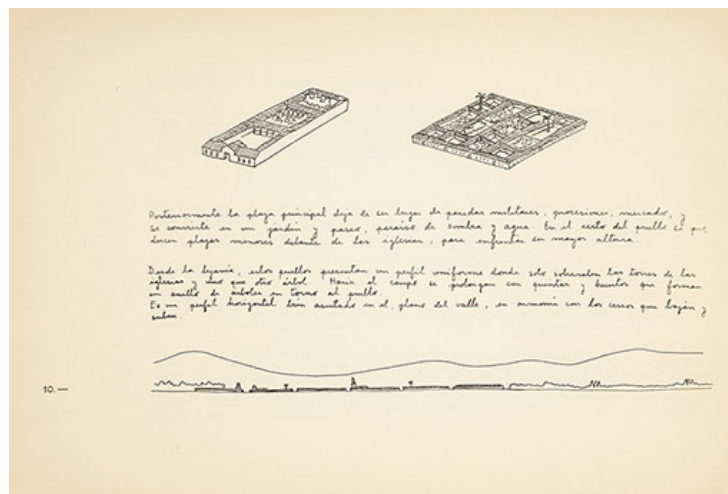 Posteriormente la plaza principal deja de ser lugar de paradas militares, procesiones, mercado, y
se convierte en un jardín y paseo, paraíso de sombra y agua. En el resto del pueblo se pro
ducen plazas menores delante de las iglesias, para enfrentar su mayor altura.
Desde la lejanía, estos pueblos presentan un perfil uniforme donde solo sobresalen las torres de las
iglesias y uno que otro árbol. Hacia el campo se prolongan con quintas y huertos que forman
un anillo de árboles en torno al pueblo.
Es un perfil horizontal bien asentado en el plano del valle, en armonía con los cerros que bajan y
suben.
10.—